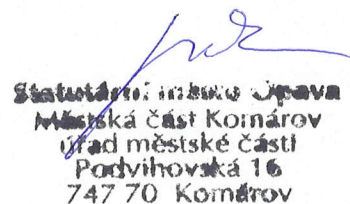 Statutární město Opava
Městská část Komárov
úřad městské části
Podvihovská 16
747 70 Komárov